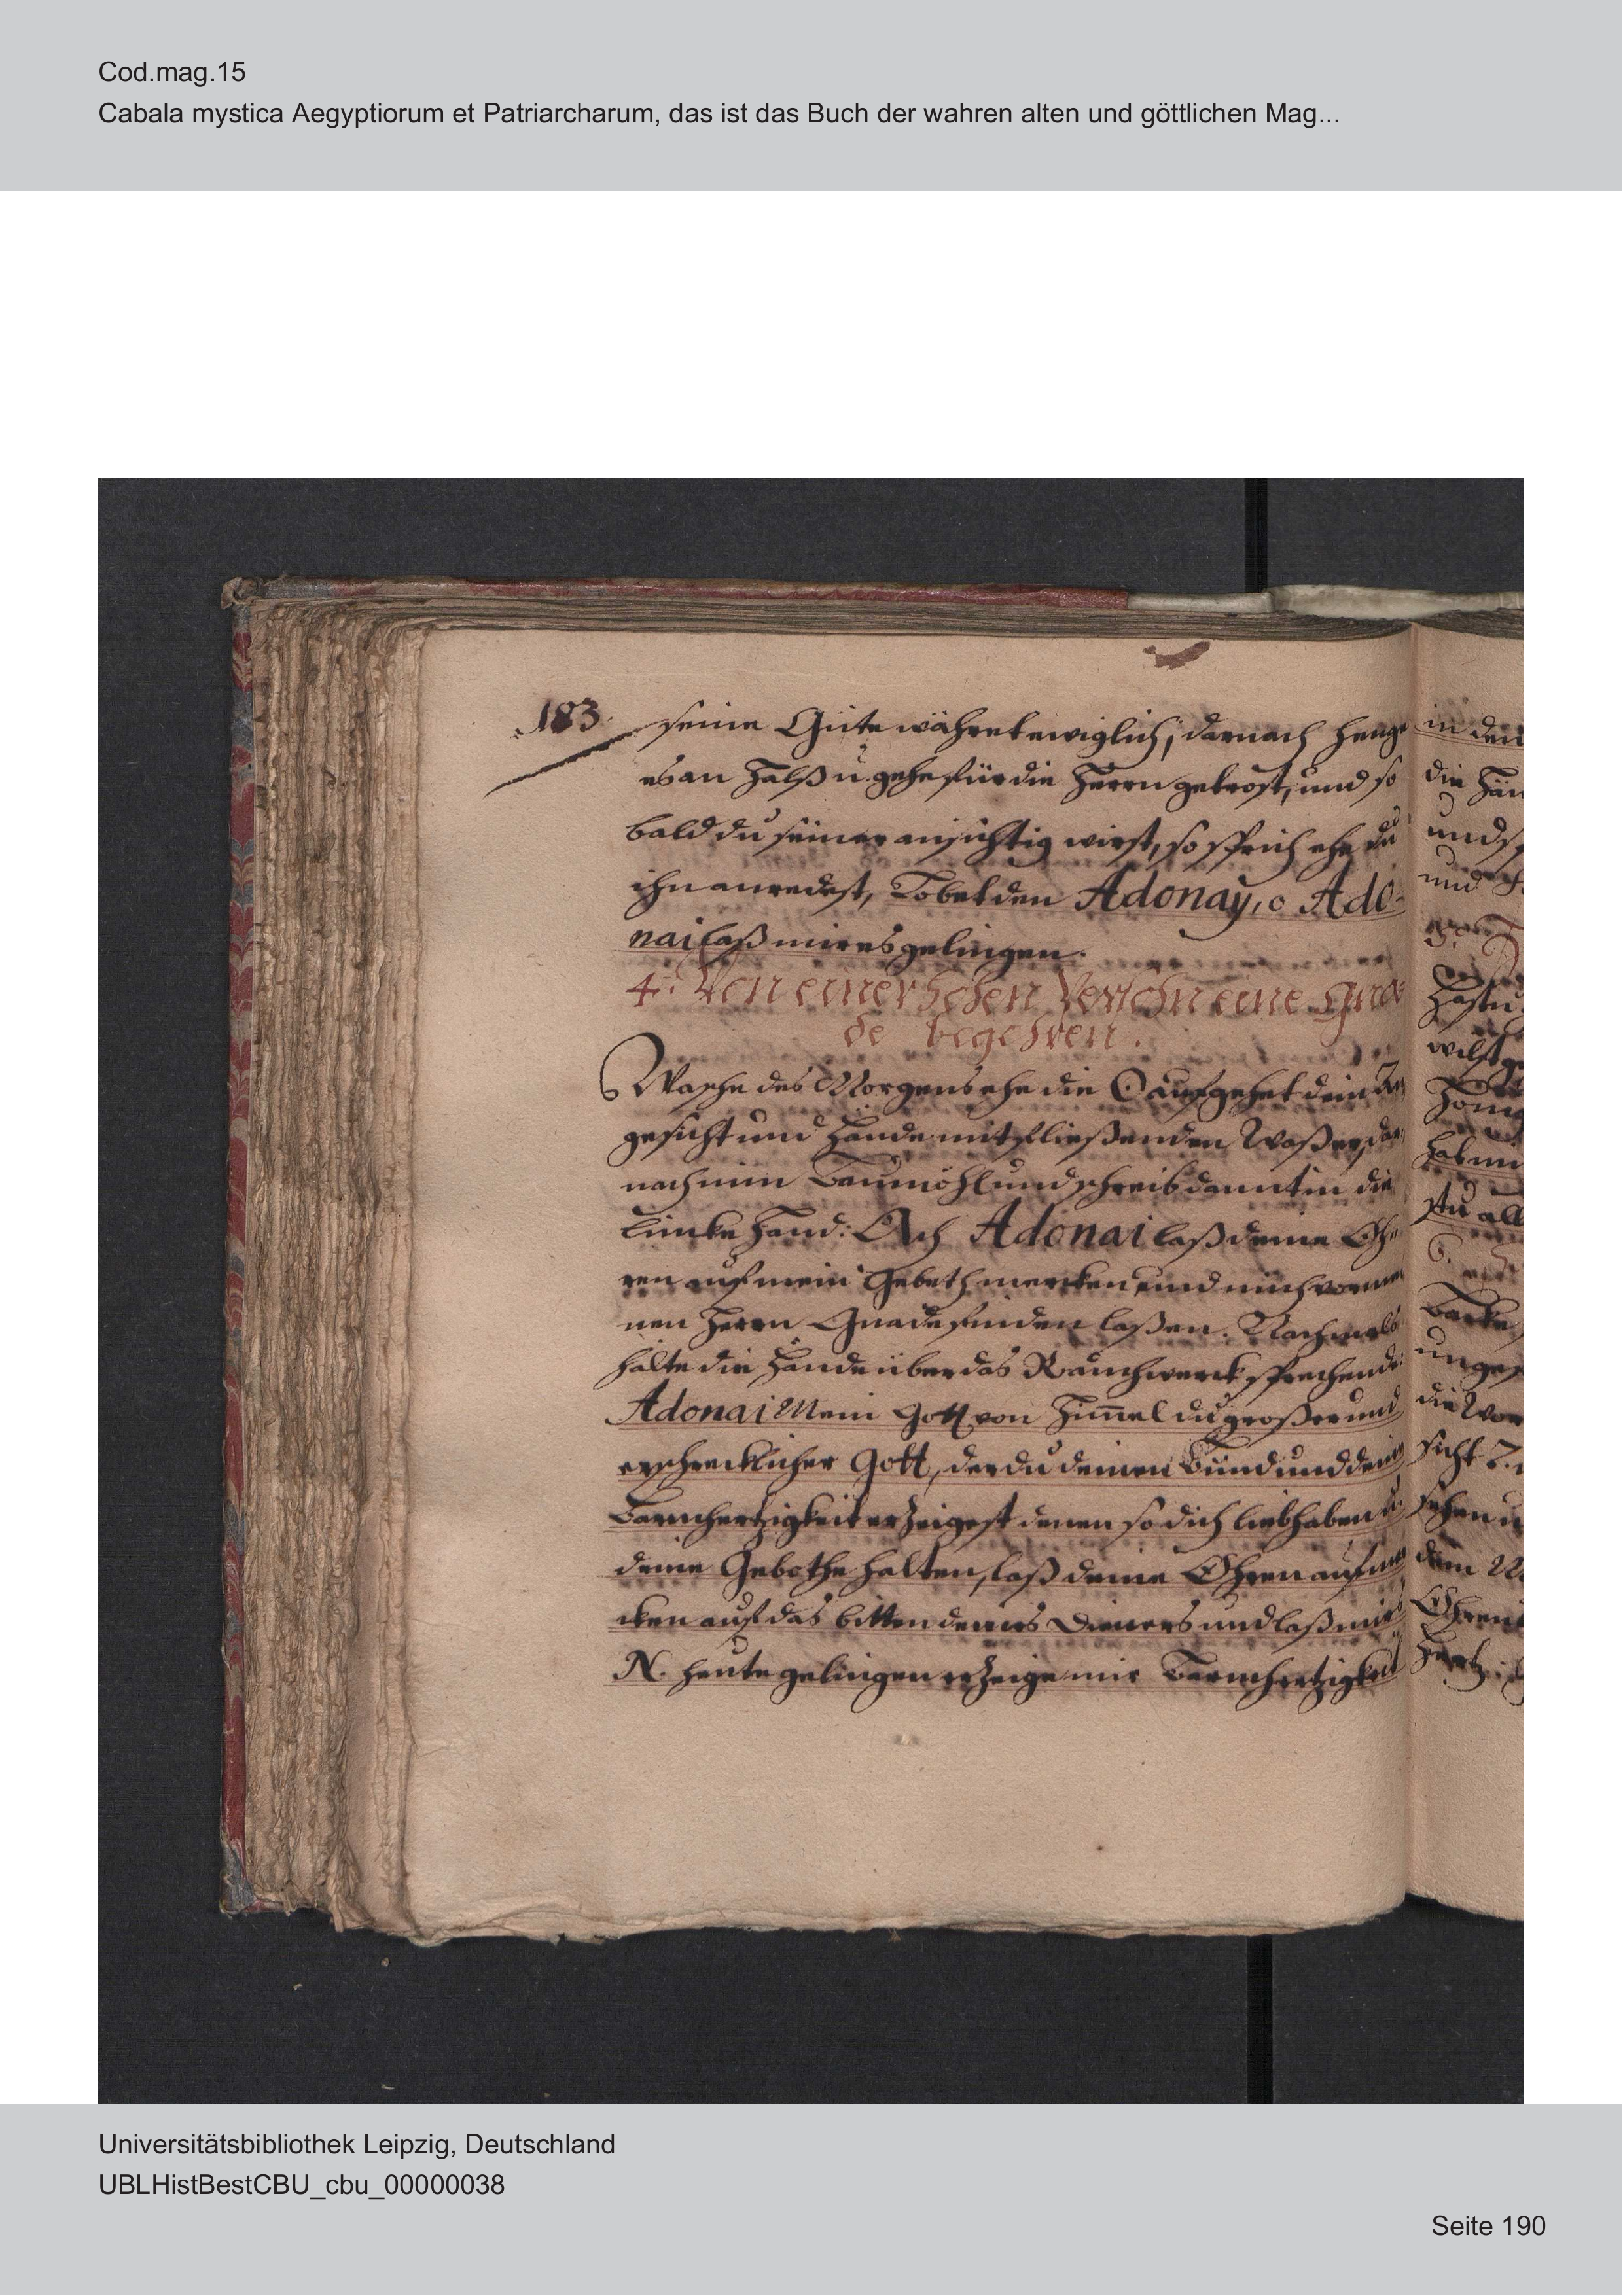 Cod.mag.15
Cabala mystica Aegyptiorum et Patriarcharum, das ist das Buch der wahren alten und göttlichen Mag...
183
seine Güte währet ewiglich, darnach henge
es an Halß u. gehe für die Herrn getrost, und so
bald du seiner ansichtig wirst, so sprich ehe du
ihn anredest, Lobet den Adonay, o Ado-
nai laß mir es gelingen.
4. Von einer hohen Person eine Gna-
de begehren.
Wasche des Morgens ehe die ☉ aufgehet dein An
gesicht und Hände mit fließenden Waßer, dar
nach nim Baumöhl und schreib damit in die
lincke Hand: Ach Adonai laß deine Oh-
ren auf mein Gebeth mercken und mich vor
nen Herrn Gnade finden laßen. Nachmals
halte die Hände über das Rauchwerck sprechende:
Adonai Mein Gott von Himel du großer und
erschrecklicher Gott, der du deinen Bund und dein
Barmhertzigkeit erzeigest denen so dich lieb haben u.
deine Gebothe halten, laß deine Ohren aufmer
cken auf das bitten deines Dieners und laß mirs
N. heute gelingen erzeige mir Barmhertzigkeit
in den
die Hän
und
und
wilst
stu all
die Wor
sicht
sehen u
dem
Ohren
Hertz
Universitätsbibliothek Leipzig, Deutschland
UBLHistBestCBU_cbu_00000038
Seite 190